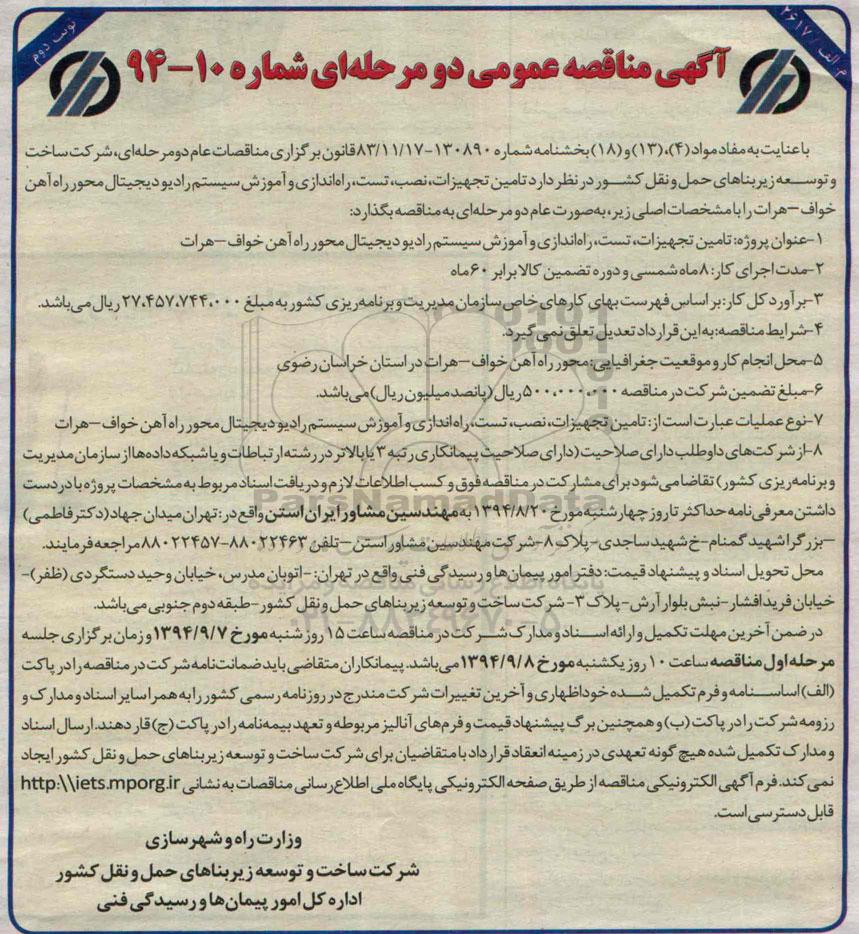 م الف / ۲۶۱۷
نوبت دوم
آگهی مناقصه عمومی دو مرحله‌ای شماره ۱۰–۹۴
با عنایت به مفاد مواد (۴)، (۱۳) و (۱۸) بخشنامه شماره ۱۳۰۸۹۰–۸۳/۱۱/۱۷ قانون برگزاری مناقصات عام دومرحله‌ای، شرکت ساخت
و توسعه زیربناهای حمل و نقل کشور در نظر دارد تامین تجهیزات، نصب، تست، راه‌اندازی و آموزش سیستم رادیو دیجیتال محور راه آهن
خواف–هرات را با مشخصات اصلی زیر، به‌صورت عام دو مرحله‌ای به مناقصه بگذارد:
۱–عنوان پروژه: تامین تجهیزات، تست، راه‌اندازی و آموزش سیستم رادیو دیجیتال محور راه آهن خواف–هرات
۲–مدت اجرای کار: ۸ ماه شمسی و دوره تضمین کالا برابر ۶۰ ماه
۳–برآورد کل کار: بر اساس فهرست بهای کارهای خاص سازمان مدیریت و برنامه‌ریزی کشور به مبلغ ۲۷،۴۵۷،۷۴۴،۰۰۰ ریال می‌باشد.
۴–شرایط مناقصه: به این قرارداد تعدیل تعلق نمی گیرد.
۵–محل انجام کار و موقعیت جغرافیایی: محور راه آهن خواف–هرات در استان خراسان رضوی
۶–مبلغ تضمین شرکت در مناقصه ۵۰۰،۰۰۰،۰۰۰ ریال (پانصد میلیون ریال) می‌باشد.
۷–نوع عملیات عبارت است از: تامین تجهیزات، نصب، تست، راه‌اندازی و آموزش سیستم رادیو دیجیتال محور راه آهن خواف–هرات
۸–از شرکت‌های داوطلب دارای صلاحیت (دارای صلاحیت پیمانکاری رتبه ۳ یا بالاتر در رشته ارتباطات و یا شبکه داده‌ها از سازمان مدیریت
و برنامه‌ریزی کشور) تقاضا می‌شود برای مشارکت در مناقصه فوق و کسب اطلاعات لازم و دریافت اسناد مربوط به مشخصات پروژه با در دست
داشتن معرفی نامه حداکثر تا روز چهارشنبه مورخ ۱۳۹۴/۸/۲۰ به مهندسین مشاور ایران استن واقع در: تهران میدان جهاد (دکتر فاطمی)
–بزرگراه شهید گمنام–خ شهید ساجدی–پلاک ۸–شرکت مهندسین مشاور استن – تلفن ۸۸۰۲۲۴۶۳–۸۸۰۲۲۴۵۷ مراجعه فرمایند.
محل تحویل اسناد و پیشنهاد قیمت: دفتر امور پیمان ها و رسیدگی فنی واقع در تهران: –اتوبان مدرس، خیابان وحید دستگردی (ظفر)–
خیابان فرید افشار–نبش بلوار آرش–پلاک ۳– شرکت ساخت و توسعه زیربناهای حمل و نقل کشور–طبقه دوم جنوبی می‌باشد.
در ضمن آخرین مهلت تکمیل و ارائه اسناد و مدارک شرکت در مناقصه ساعت ۱۵ روز شنبه مورخ ۱۳۹۴/۹/۷ و زمان برگزاری جلسه
مرحله اول مناقصه ساعت ۱۰ روز یکشنبه مورخ ۱۳۹۴/۹/۸ می‌باشد. پیمانکاران متقاضی باید ضمانت‌نامه شرکت در مناقصه را در پاکت
(الف) اساسنامه و فرم تکمیل شده خوداظهاری و آخرین تغییرات شرکت مندرج در روزنامه رسمی کشور را به همرا سایر اسناد و مدارک و
رزومه شرکت را در پاکت (ب) و همچنین برگ پیشنهاد قیمت و فرم‌های آنالیز مربوطه و تعهد بیمه‌نامه را در پاکت (ج) قار دهند. ارسال اسناد
و مدارک تکمیل شده هیچ گونه تعهدی در زمینه انعقاد قرارداد با متقاضیان برای شرکت ساخت و توسعه زیربناهای حمل و نقل کشور ایجاد
نمی کند. فرم آگهی الکترونیکی مناقصه از طریق صفحه الکترونیکی پایگاه ملی اطلاع‌رسانی مناقصات به نشانی http:\\iets.mporg.ir
قابل دسترسی است.
وزارت راه و شهرسازی
شرکت ساخت و توسعه زیربناهای حمل و نقل کشور
اداره کل امور پیمان‌ها و رسیدگی فنی
ParsNamadData